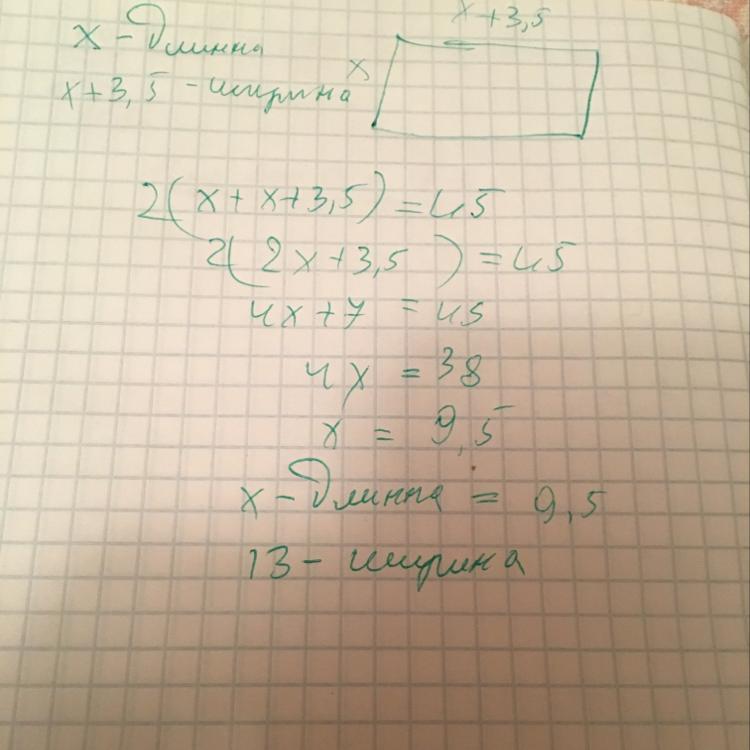 x - Длинна
x+3,5 - ширина
x+3,5
x
2(x+x+3,5)=45
2(2x+3,5)=45
4x+7=45
4x=38
x=9,5
x - Длинна = 9,5
13 - ширина